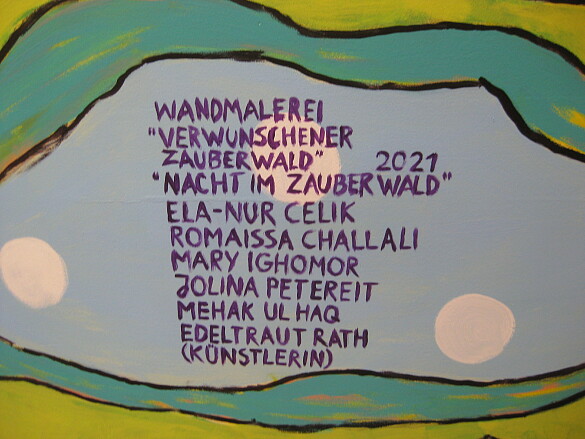 WANDMALEREI
"VERWUNSCHENER
ZAUBERWALD" 2021
"NACHT IM ZAUBERWALD"
ELA-NUR CELIK
ROMAISSA CHALLALI
MARY IGHOMOR
JOLINA PETEREIT
MEHAK UL HAQ
EDELTRAUT RATH
(KÜNSTLERIN)